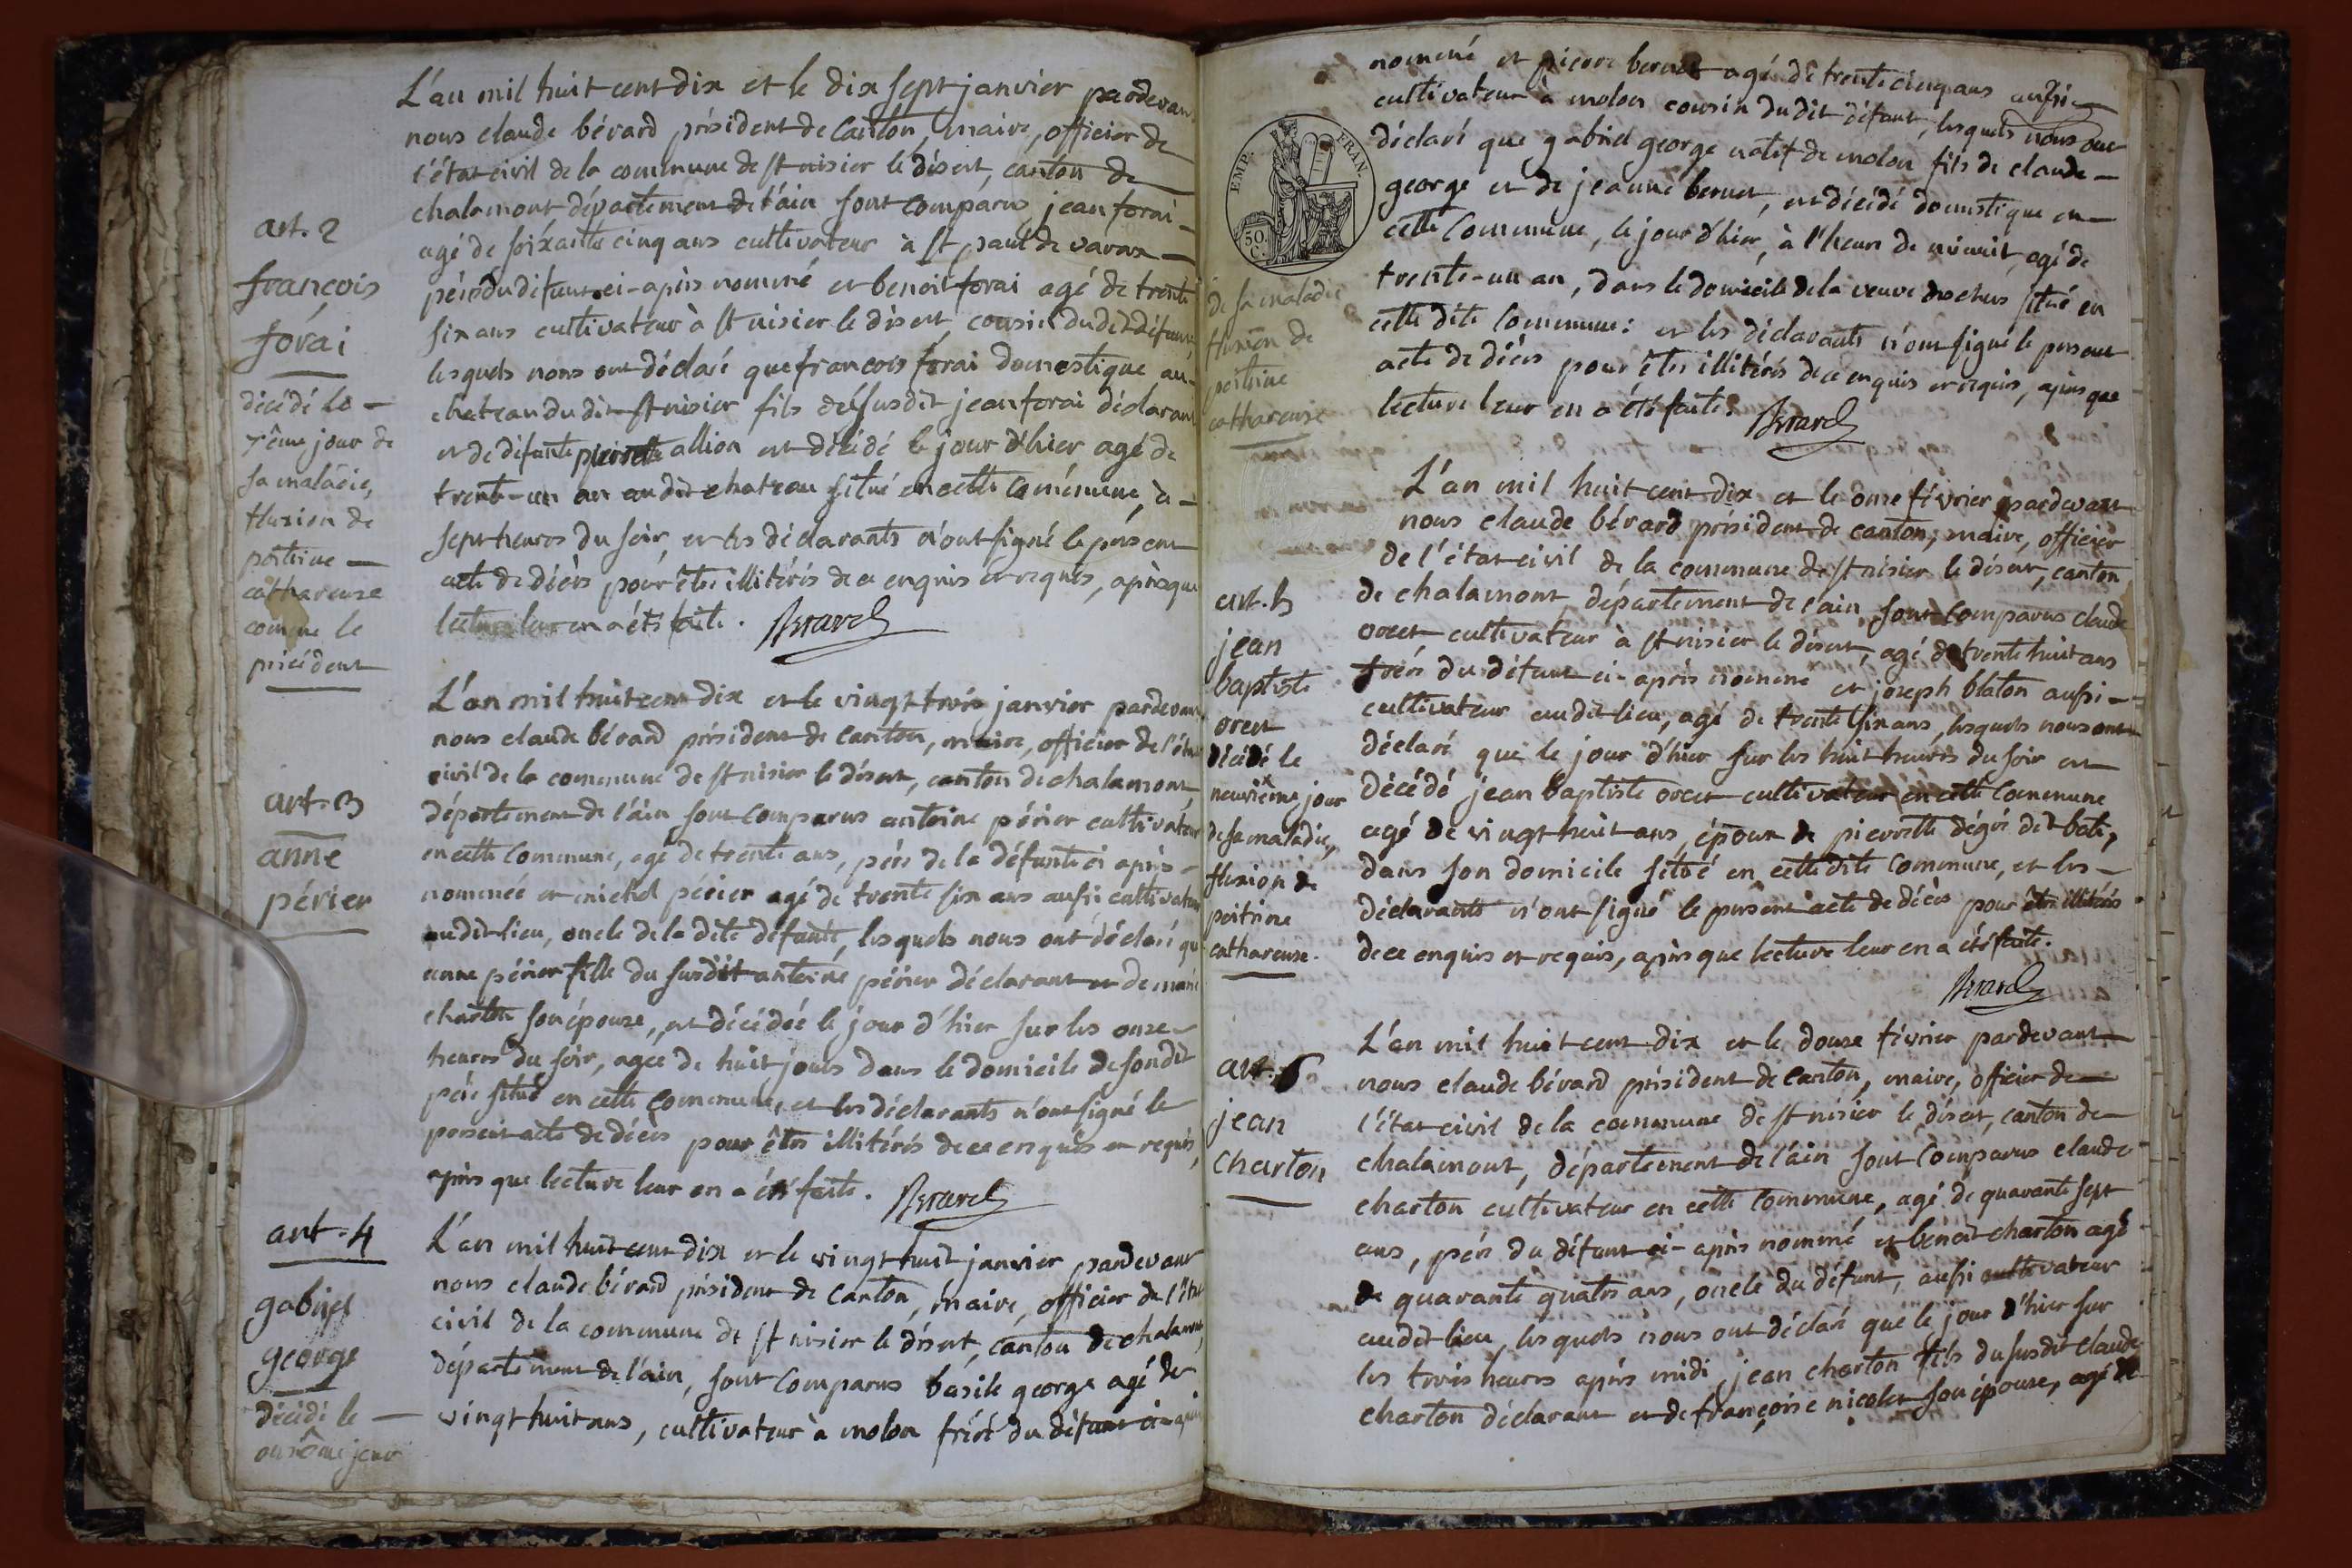 L'an mil huit cent dix et le dix sept janvier pardevant
nous claude bérard président de Canton, maire, officier de
l'état civil de la commune de st nisier le désert, canton de
chalamont département de l'ain sont comparus jean forai
agé de soixante cinq ans cultivateur à st paul de varax
père du défunt ci-après nommé et benoit forai agé de trente
six ans cultivateur à st nisier le désert, cousin dudit défunt,
lesquels nous ont déclaré que francois forai domestique au
chateau du dit st nisier fils du susdit jean forai déclarant
et de défunte pierrette allion est décédé le jour d'hier agé de
trente-un an audit chateau situé en cette commune, à
sept heures du soir, et les déclarants n'ont signé le présent
acte de décès pour être illitérés de ce enquis et requis, après que
lecture leur en a été faite. Berard
art. 2
françois
forai
décédé le
7ême jour de
sa maladie,
fluxion de
poitrine
cathareuse
comme le
précédent
L'an mil huit cent dix et le vingt trois janvier pardevant
nous claude bérard président de canton, maire, officier de l'état
civil de la commune de st nisier le désert, canton de chalamont
département de l'ain sont comparus antoine périer cultivateur
en cette commune, agé de trente ans, père de la défunte ci après
nommée et michel périer agé de trente six ans aussi cultivateur
audit lieu, oncle de la dite défunte, lesquels nous ont déclaré que
anne périer fille du susdit antoine périer déclarant et de marie
charton son épouse, est décédée le jour d'hier sur les onze
heures du soir, agée de huit jours dans le domicile de son dit
père situé en cette commune, et les déclarants n'ont signé le
présent acte de décès pour être illitérés de ce enquis et requis,
après que lecture leur en a été faite. Berard
art. 3
anne
périer
L'an mil huit cent dix et le vingt huit janvier pardevant
nous claude bérard président de Canton, maire, officier de l'état
civil de la commune de st nisier le désert, canton de chalamont,
département de l'ain, sont comparus basile george agé de
vingt huit ans, cultivateur à molon frère du défunt ci-après
art. 4
gabriel
george
décédé le
onzième jour
nommé et pierre bernet agé de trente cinq ans aussi
cultivateur à molon cousin dudit défunt, lesquels nous ont
déclaré que gabriel george natif de molon fils de claude
george et de jeanne bernet, est décédé domestique en
cette Commune, le jour d'hier, à l'heure de minuit, agé de
trente-un an, dans le domicile de la veuve drochers situé en
cette dite Commune: et les déclarants n'ont signé le présent
acte de décès pour être illitérés de ce enquis et requis, après que
lecture leur en a été faite. Berard
EMP. FRAN.
50. C.
de sa maladie
fluxion de
poitrine
cathareuse
L'an mil huit cent dix et le onze février pardevant
nous claude bérard président de canton, maire, officier
de l'état civil de la commune de st nisier le désert, canton
de chalamont, département de l'ain sont comparus claude
orcet cultivateur à st nisier le désert, agé de trente huit ans
frère du défunt ci-après nommé et joseph blaton aussi
cultivateur audit lieu, agé de trente six ans, lesquels nous ont
déclaré que le jour d'hier sur les huit heures du soir est
décédé jean baptiste orcet cultivateur en cette Commune
agé de vingt huit ans, époux de pierrette dégré dit bati,
dans son domicile situé en cette dite Commune, et les
déclarants n'ont signé le présent acte de décès pour être illitérés
de ce enquis et requis, après que lecture leur en a été faite.
Berard
art. 5
jean
baptiste
orcet
décédé le
neuvième jour
de sa maladie,
fluxion de
poitrine
cathareuse.
L'an mil huit cent dix et le douze février pardevant
nous claude bérard président de Canton, maire, officier de
l'état civil de la commune de st nisier le désert, canton de
chalamont, département de l'ain sont comparus claude
charton cultivateur en cette Commune, agé de quarante sept
ans, père du défunt ci-après nommé et benoit charton agé
de quarante quatre ans, oncle du défunt, aussi cultivateur
audit lieu, lesquels nous ont déclaré que le jour d'hier sur
les trois heures après midi, jean charton fils du susdit claude
charton déclarant et de françoise nicolet son épouse, agé de
art. 6
jean
charton